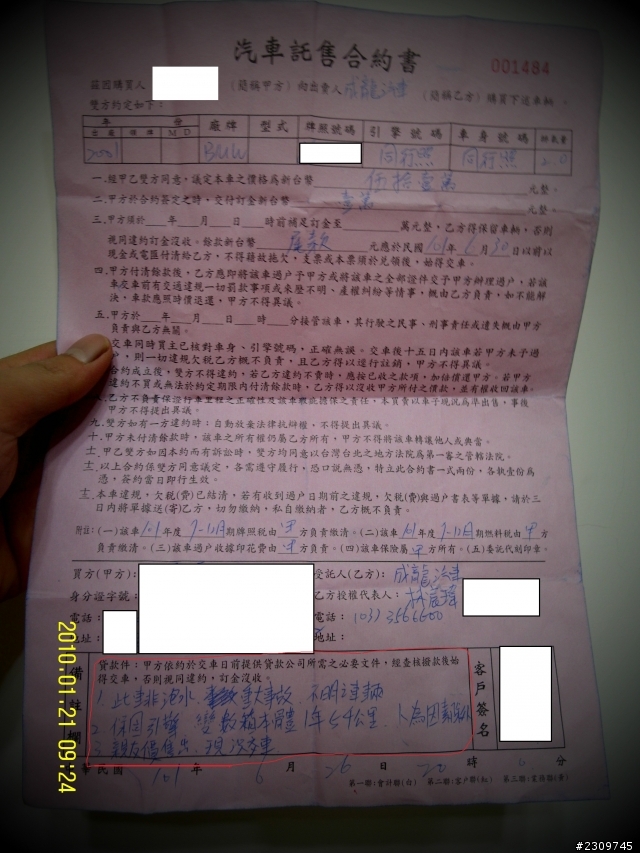 汽車託售合約書
001484
茲因購買人 (簡稱甲方) 向出賣人 成龍汽車 (簡稱乙方) 購買下述車輛，
雙方約定如下：
年 份 廠牌 型式 牌照號碼 引擎號碼 車身號碼 排氣量
出廠 領牌 MD
2001 BMW 同行照 同行照 2.0
一.經甲乙雙方同意，議定本車之價格為新台幣 伍拾壹萬 元整。
二.甲方於合約簽定之時，交付訂金新台幣 壹萬 元整。
三.甲方須於 年 月 日 時前補足訂金至 萬元整，乙方得保留車輛，否則
視同違約訂金沒收。餘款新台幣 尾款 元應於民國 101 年 6 月 30 日以前以
現金或電匯付清給乙方，不得藉故拖欠，支票或本票須於兌領後，始得交車。
四.甲方付清餘款後，乙方應即將該車過戶予甲方或將該車之全部證件交予甲方辦理過戶，若該
車交車前有交通違規一切罰款事項或來歷不明、產權糾紛等情事，概由乙方負責，如不能解
決，車款應照時價退還，甲方不得異議。
五.甲方於 年 月 日 時 分接管該車，其行駛之民事、刑事責任或遺失概由甲方
負責與乙方無關。
交車同時買主已核對車身、引擎號碼，正確無誤。交車後十五日內該車若甲方未予過
戶，則一切違規欠稅乙方概不負責，且乙方得以逕行註銷，甲方不得異議。
合約成立後，雙方不得違約，若乙方違約不賣時，應按已收之款項，加倍償還甲方。若甲方
違約不買或無法於約定期限內付清餘款時，乙方得以沒收甲方所付之價款，並有權收回該車。
八.乙方不負責保證行車里程之正確性及該車瑕疵擔保之責任，本買賣以車子現況為準出售，事後
甲方不得提出異議。
九.雙方如有一方違約時：自動放棄法律抗辯權，不得提出異議。
十.甲方未付清餘款時，該車之所有權仍屬乙方所有，甲方不得將該車轉讓他人或典當。
十一.甲乙雙方如因本約而有訴訟時，雙方均同意以台灣台北之地方法院為第一審之管轄法院。
十二.以上合約係雙方同意議定，各需遵守履行，恐口說無憑，特立此合約書一式兩份，各執壹份為
憑，簽約當日即行生效。
十三.本車違規，欠稅(費)已結清，若有收到過戶日期前之違規，欠稅(費)與過戶書表等單據，請於三
日內將單據送(寄)乙方，切勿繳納，私自繳納者，乙方概不負責。
附註：(一)該車 101 年度 7-12月 期牌照稅由 甲 方負責繳清。(二)該車 101 年度 7-12月 期燃料稅由 甲 方
負責繳清。(三)該車過戶收據印花費由 甲 方負責。(四)該車保險屬 甲 方所有。(五)委託代刻印章。
買方(甲方)： 受託人(乙方)： 成龍汽車
身分證字號： 乙方授權代表人：
電話： 電話： (03) 3566600
地址： 地址：
備註欄
貸款件：甲方依約於交車日前提供貸款公司所需之必要文件，經查核撥款後始
得交車，否則視同違約，訂金沒收。
1. 此車非泡水 重大事故 不明之車輛
2. 保固引擎 變數箱本體 1年 5千公里 人為因素除外
3. 現況交車
客戶簽名
華民國 101 年 6 月 26 日 20 時 分
第一聯：會計聯(白) 第二聯：客戶聯(紅) 第三聯：業務聯(黃)
2010.01.21 09:24
#2309745